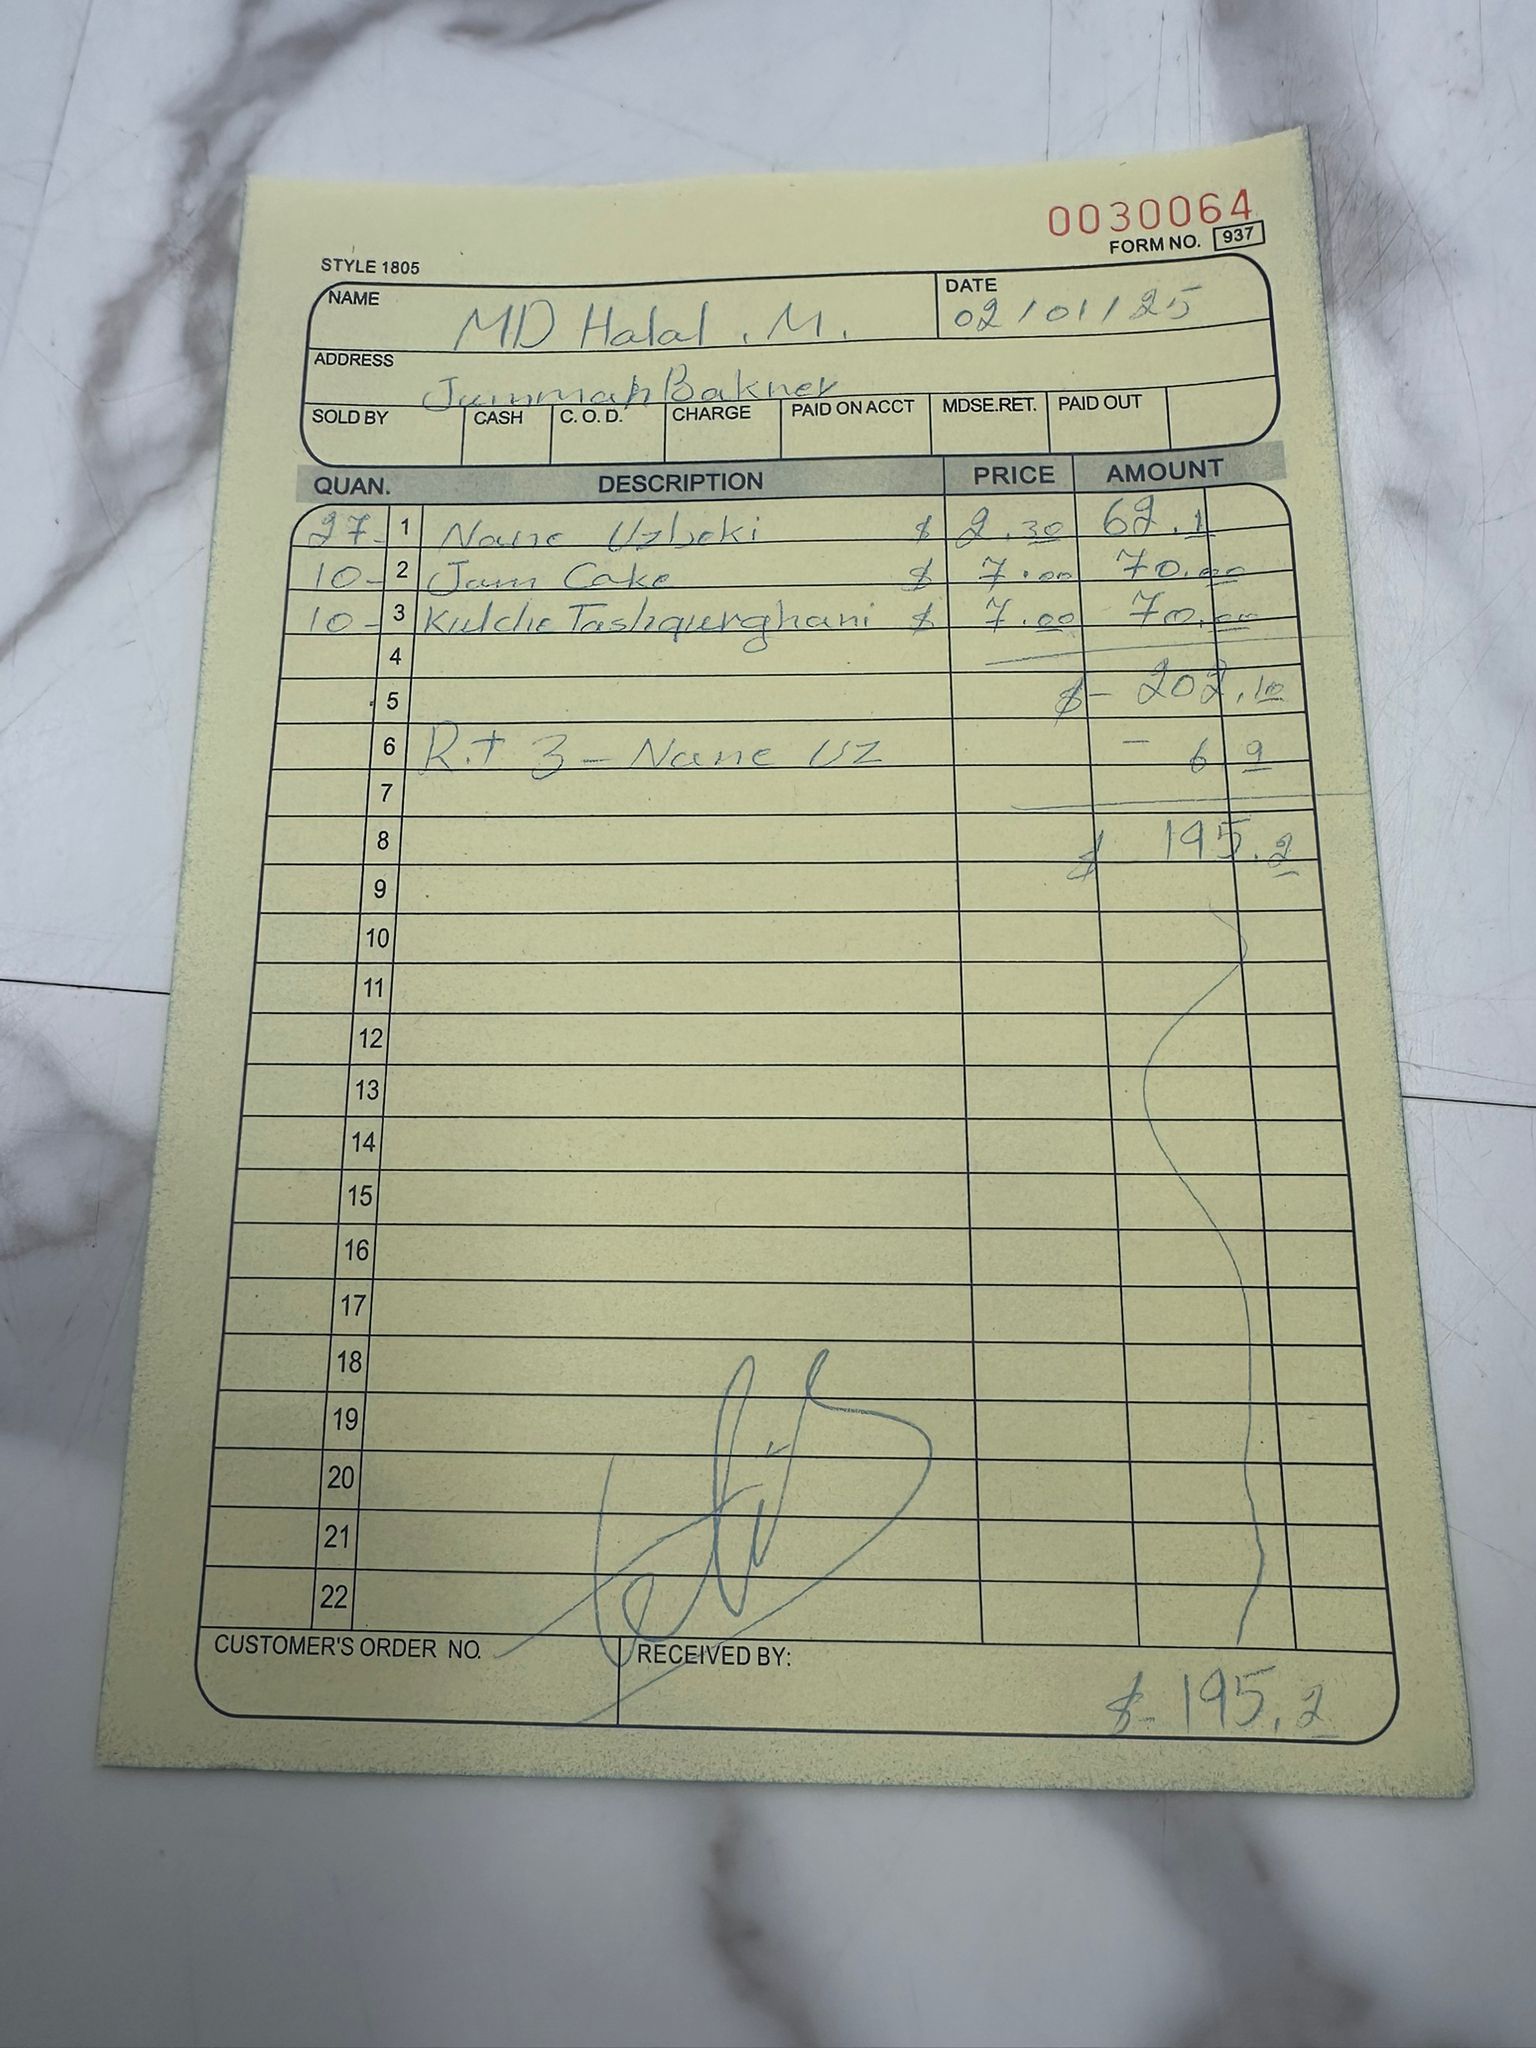 0030064
FORM NO. 937
STYLE 1805
NAME MD Halal . M. DATE 02/01/25
ADDRESS Jummah Bakner
SOLD BY CASH C. O. D. CHARGE PAID ON ACCT MDSE.RET. PAID OUT
QUAN. DESCRIPTION PRICE AMOUNT
27- 1 Nane Uzbeki $ 2.30 62.1
10- 2 Jam Cake $ 7.00 70.00
10- 3 Kulche Tashqurghani $ 7.00 70.00
4
5 $- 202.10
6 R.t 3 - Nane UZ - 6 9
7
8 $ 195.2
9
10
11
12
13
14
15
16
17
18
19
20
21
22
CUSTOMER'S ORDER NO. RECEIVED BY:
$- 195.2